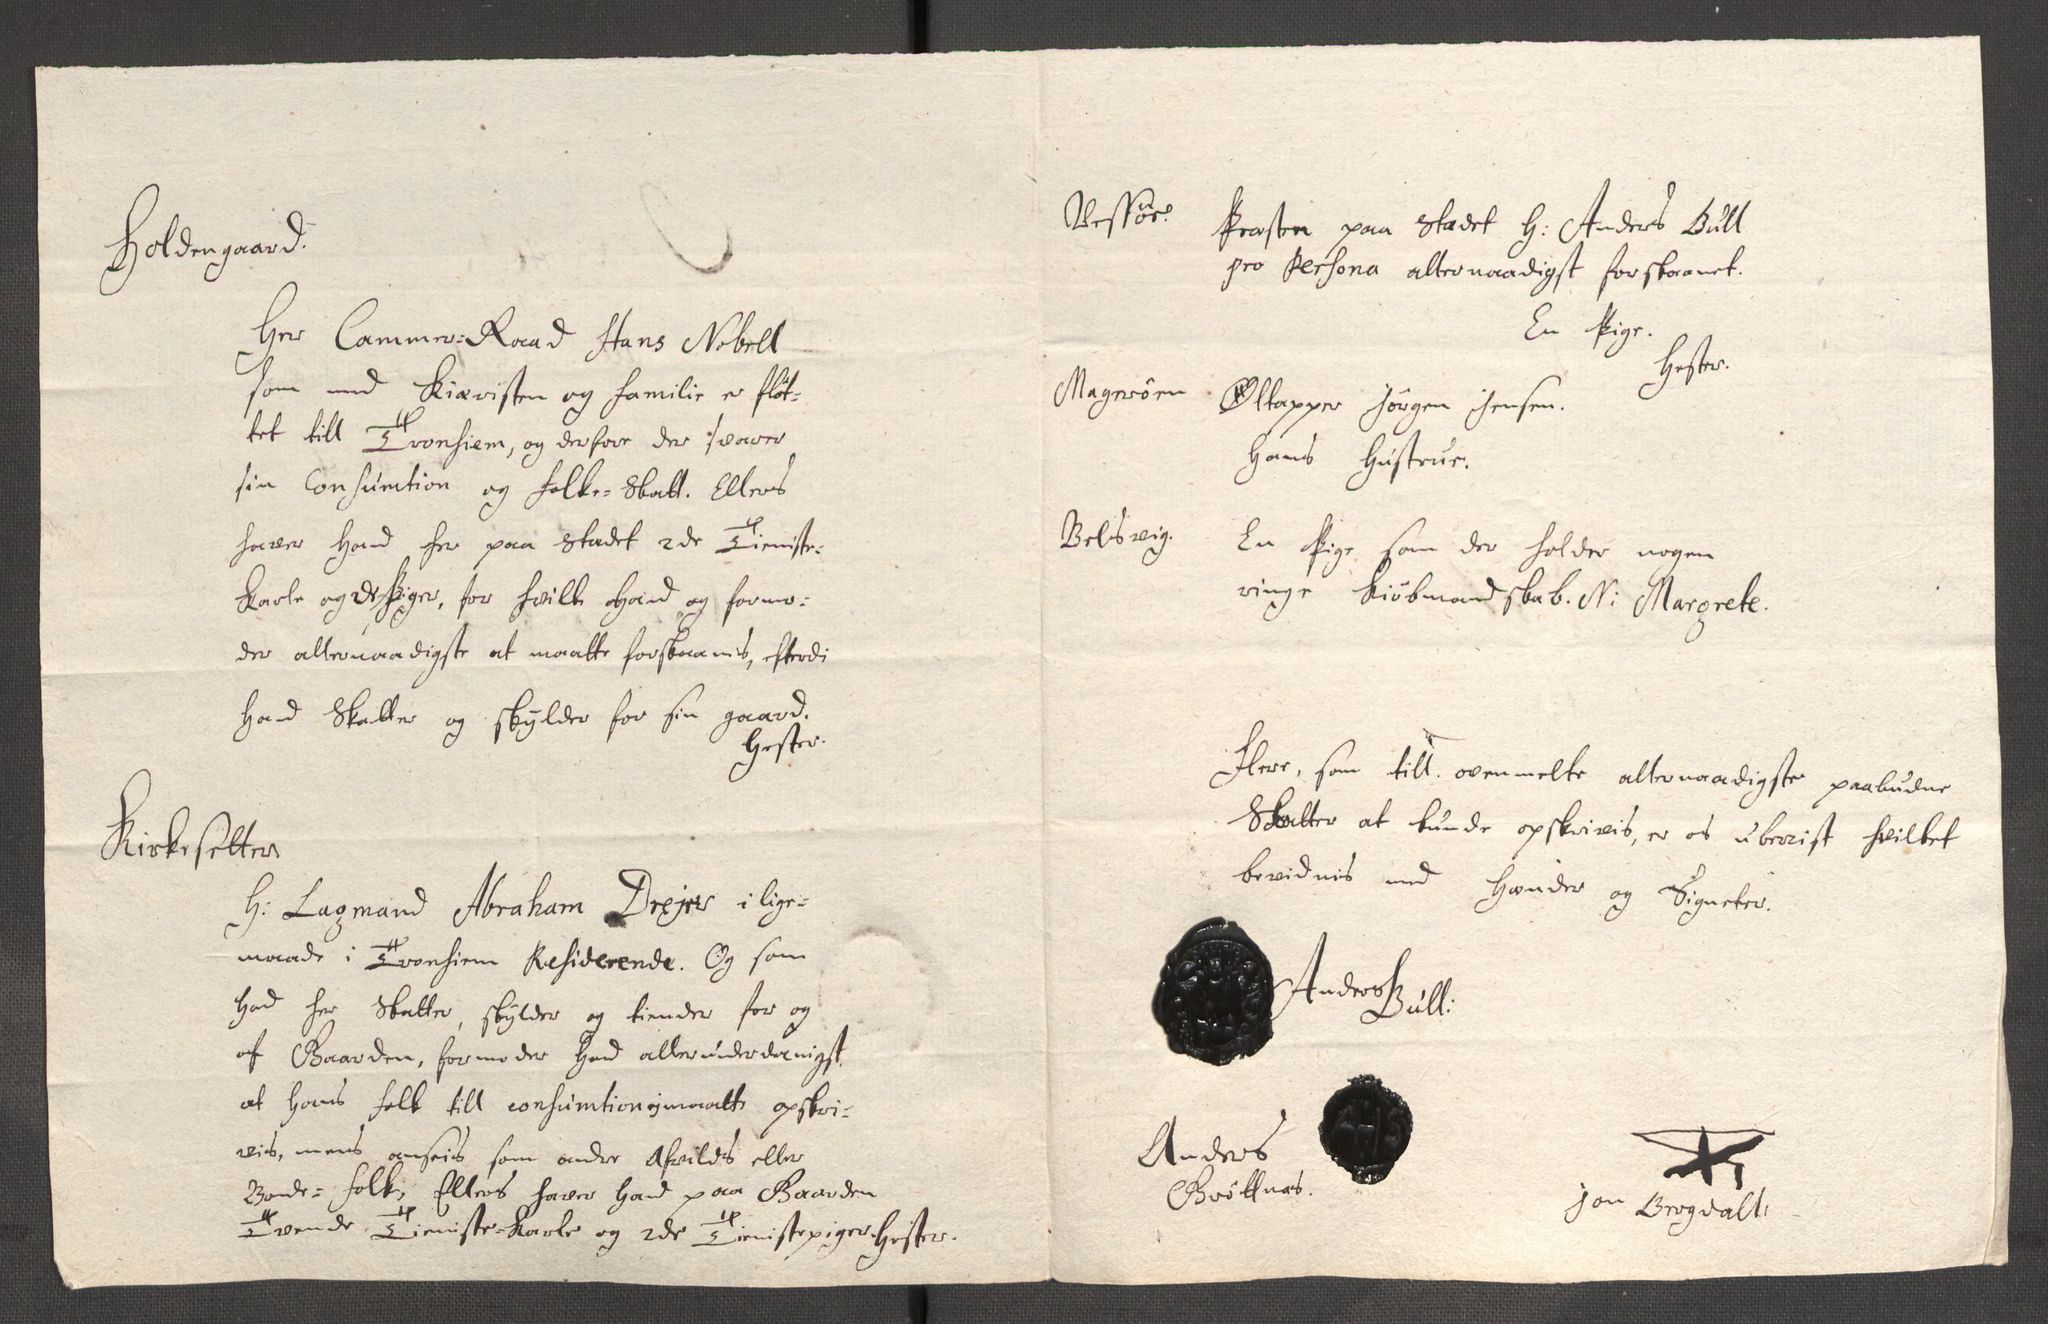 Holdengaard.
Her Cammer=Raad Hans Nobell
som med Kiæristen og familie er fløt=
tet till Tronhiem, og derfore der svarer
sin Consumtion og folke=Skatt. Ellers
haver hand her paa Stædet 2de Tieniste=
Karle og 2de Piger, for hvilke hand og formo=
der allernaadigste at maatte forskaanis, efterdi
hand Skatter og skylder for sin gaard.
Hester.
Kirkesetter
H: Lagmand Abraham Drejer i lige=
maade i Tronhiem Residerende. Og som
had her Skatter, skylder og tiender for og
af Gaarden, formoder hand allerunderdanigst
at hans folk till consumtion ej maatte opskri=
vis, mens anseis som andre Afvilds eller
Bonde=folk, Ellers haver hand paa Gaarden
Tvende Tieniste=Karle og 2de Tienistepiger. Hester.
Vessøe.
Præsten paa Stædet H: Anders Bull
pro Persona allernaadigst forskaanet.
En Pige.
Hester.
Magerøen
Øltapper Jörgen Jensen.
Hans Hustrue.
Belsvig.
En Pige som der holder nogen
ringe Kiöbmandskab. N: Margrete.
Flere, som till ovenmelte allernaadigste paabudne
Skatter at kunde opskrivis, er os ubevist hvilket
bevidnis med Hænder og Signeter.
Anders Bull:
Anders
Gröttnæs.
Jon Bergdall: